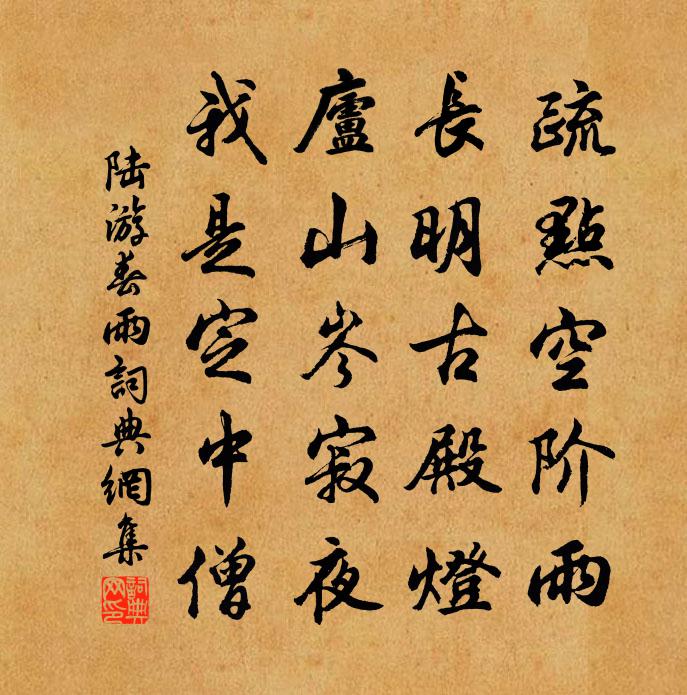 疏點空阶雨
長明古殿燈
廬山岑寂夜
我是定中僧
陆游春雨詞典網集
詞典網印